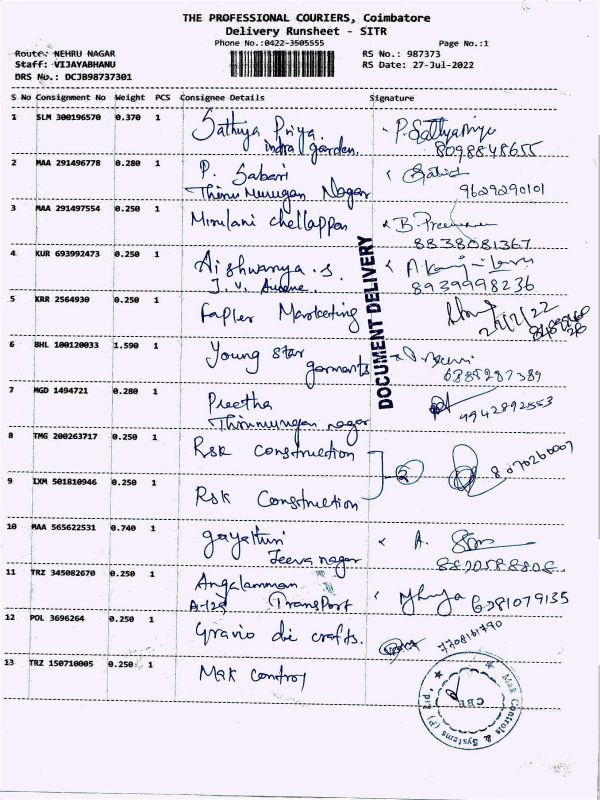 THE PROFESSIONAL COURIERS, Coimbatore
Delivery Runsheet - SITR
Phone No.:0422-3505555 Page No.:1
Route: NEHRU NAGAR RS No.: 987373
Staff: VIJAYABHANU RS Date: 27-Jul-2022
DRS No.: DCJB98737301
S No Consignment No Weight PCS Consignee Details Signature
1 SLM 300196570 0.370 1 Sathiya Priya. P. Sathyapriya
indra garden. 8098848655
2 MAA 291496778 0.280 1 P. Sabari
Thiru Murugan Nagar 9629290101
3 MAA 291497554 0.250 1 Mirulani chellappan B.
8838081367
4 KUR 693992473 0.250 1 Aishwarya .S.
J.V. 8939998236
5 KRR 2564930 0.250 1 Fapler Marketing
6 BHL 100120033 1.590 1 Young Star
garments
7 MGD 1494721 0.280 1 Preetha 9942892553
Thirumurugan nagar
8 TMG 200263717 0.250 1 Rsk construction
2 8070260007
9 IXM 501810946 0.250 1 Rsk Construction
10 MAA 565622531 0.740 1 gayathri A.
Jeeva nagar
11 TRZ 345082670 0.250 1 Angalamman
A-129 Transport 6381079135
12 POL 3696264 0.250 1 Gravio die crafts. 7708161790
13 TRZ 150710005 0.250 1 Mak control
DOCUMENT DELIVERY
Mak Controls & Systems (P) Ltd.
CBE